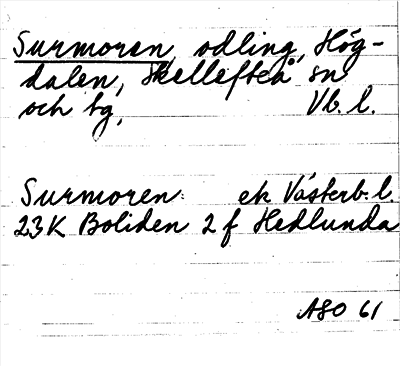 Surmoren, odling, Hög-
dalen, Skellefteå sn
och bg, Vb. l.
Surmoren: ek Västerb. l.
23K Boliden 2 f Hedlunda
ASO 61